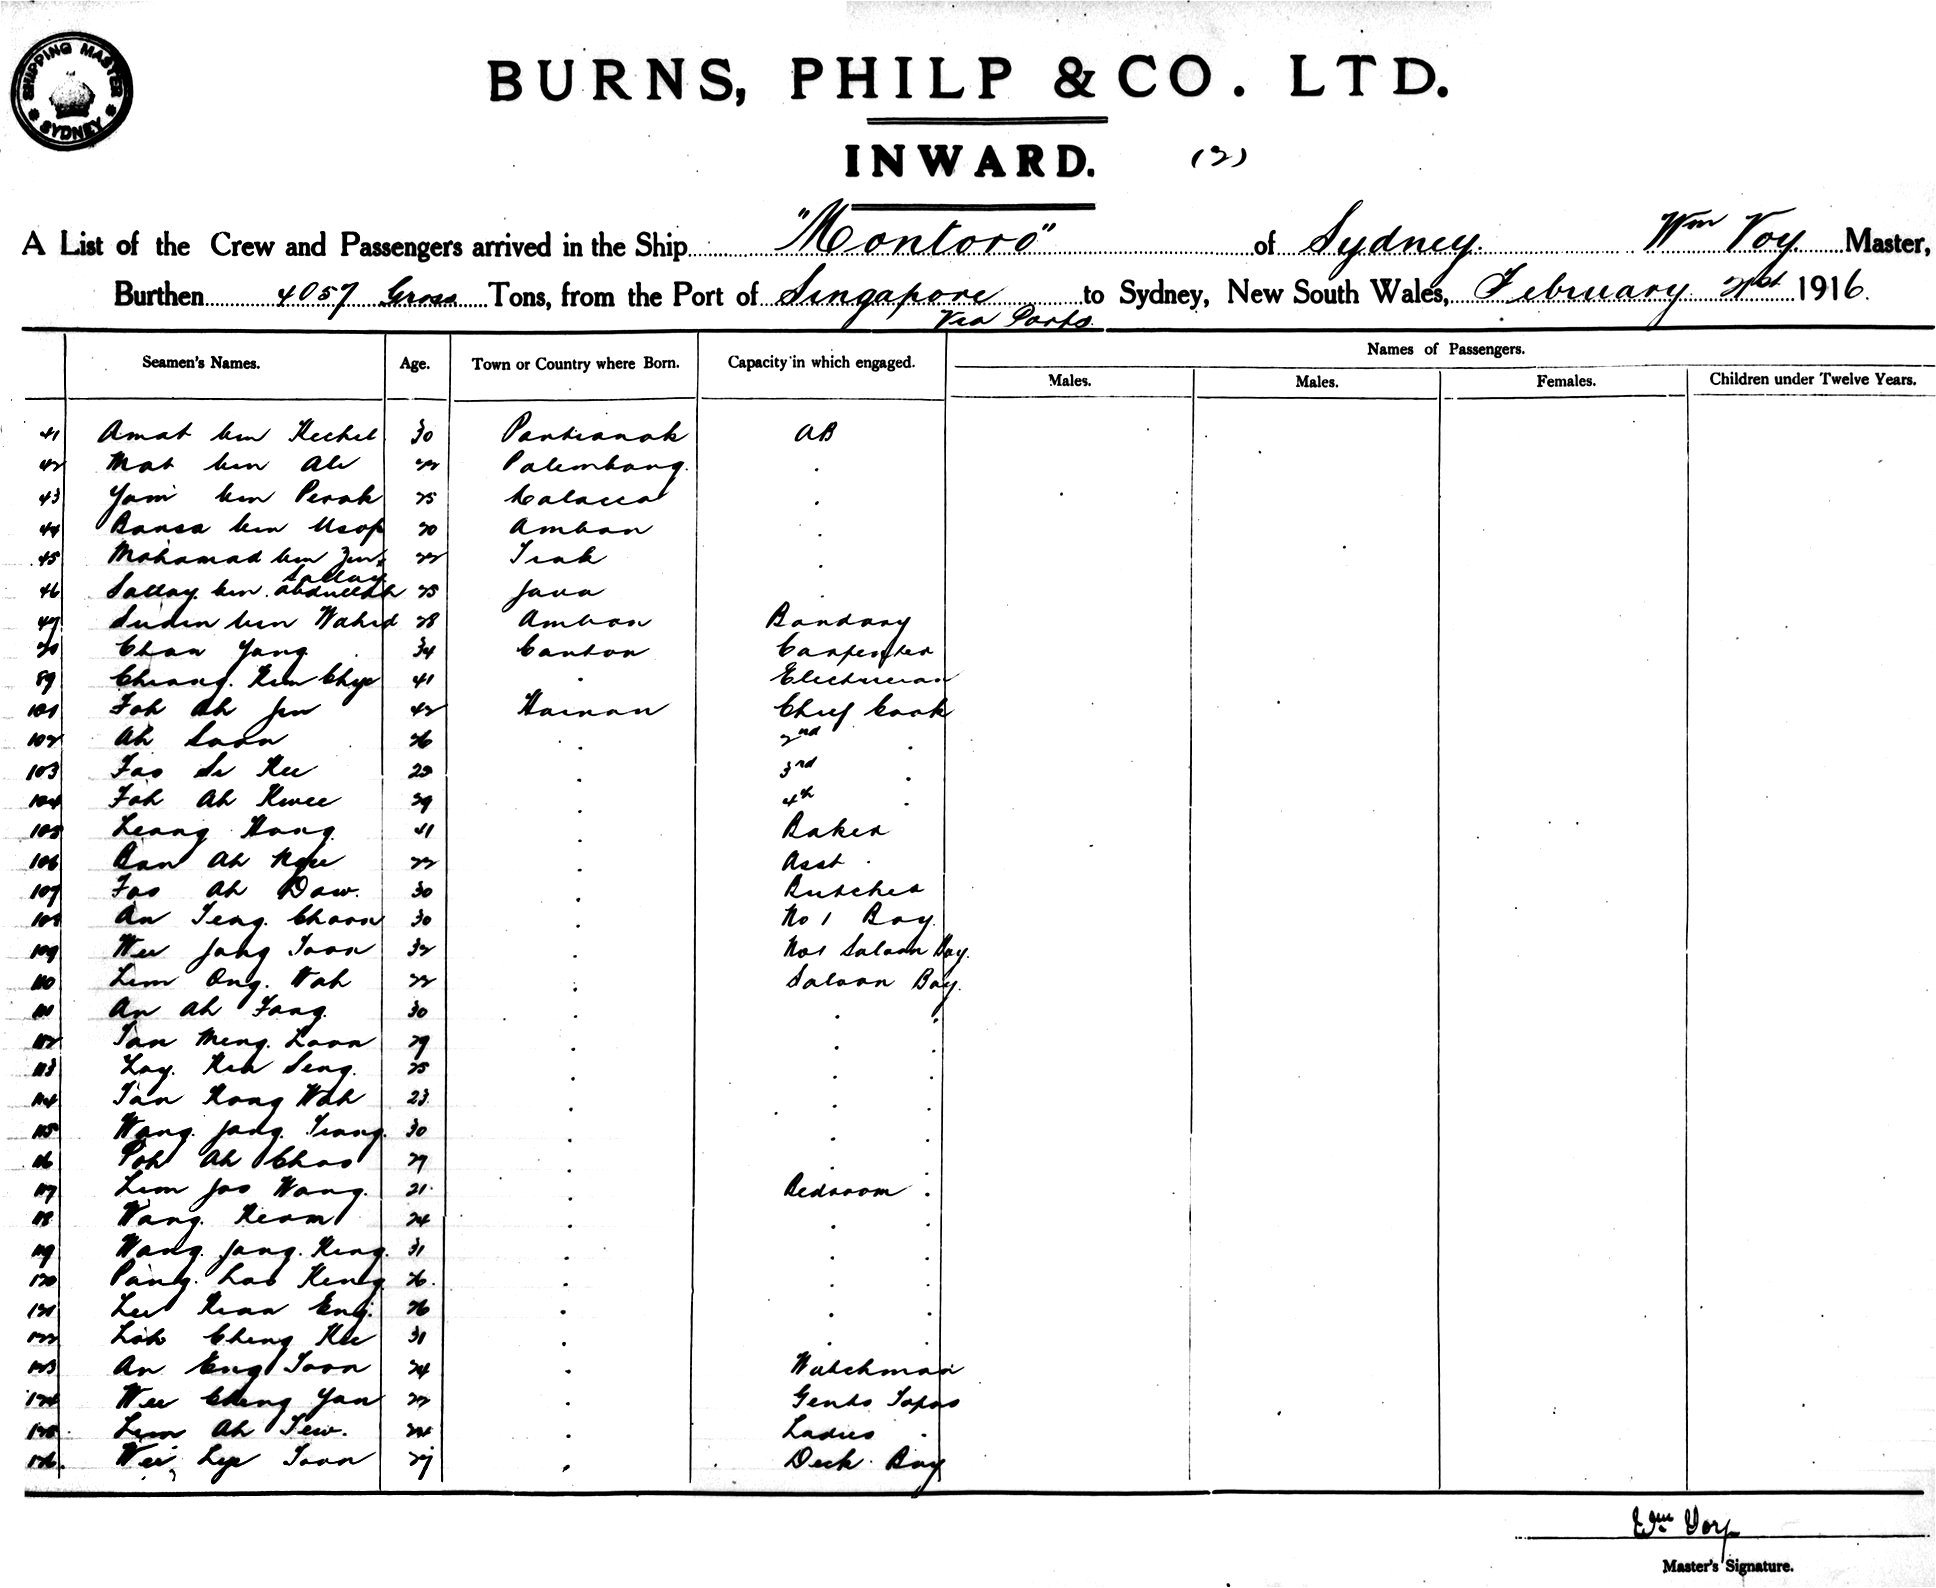 SHIPPING MASTER
SYDNEY
BURNS, PHILP & CO. LTD.
INWARD. (2)
A List of the Crew and Passengers arrived in the Ship "Montoro" of Sydney. Wm Voy. Master,
Burthen 4057 Gross Tons, from the Port of Singapore to Sydney, New South Wales, February 21st 1916.
Via Ports.
Names of Passengers.
Seamen's Names. Age. Town or Country where Born. Capacity in which engaged.
Males. Males. Females. Children under Twelve Years.
41 Amat bin Kechil 30 Pontianak AB
42 Mat bin Ali 22 Palembang.
43 Yami bin Perak 25 Malacca
44 Bansa bin Usop 20 Ambon
45 Mohamad bin 22
46 Sallay bin Abdullah 25 Java
Sallay
47 Sudin bin Wahid 28 Ambon Bandary
Chan Yong 34 Canton Carpenter
89 Cheong. Kim Chye 41 . Electrician
101 Foh Ah Jin 42 Hainan Chief Cook
102 Ah Soon 26 . 2nd .
103 Foo Si Kee 29 . 3rd .
104 Foh Ah Kwee 29 . 4th .
105 Leong Hong 41 . Baker
106 Ban Ah Ngee 22 . Asst .
107 Foo Ah Daw. 30 . Butcher
108 An Teng. Choon 30 . No 1 Boy.
109 Wee Jong Toon 32 . No1 Saloon Boy.
110 Lim Ong. Wah 22 . Saloon Boy.
111 An Ah Fong. 30 . . .
112 Tan Meng. Loon 29 . . .
113 Loy. Kia Seng. 25 . . .
114 Tan Kong Wah 23 . . .
115 Wong. Jong. Tiong. 30 . . .
116 Poh Ah Choo 27 . . .
117 Lim Joo Wong. 21 . Bedroom .
118 Wong. Keom 24 . . .
119 Wong. Jong. King. 31 . . .
120 Pang. Lao Keng 26. . . .
121 Lee Kian Eng. 26 . . .
122 Loh Cheng Kee 31 . . .
123 An Eng Toon 24 . Watchman
124 Wee Cheng Yan 22 . Gents Topas
125 Lim Ah Tew. 24 . Ladies .
126. Wee Lye Toon 27 . Deck Boy
Wm Voy
Master's Signature.